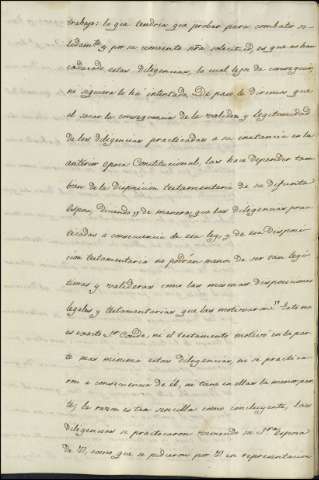 trabajo: lo que tendria que probar para combatir so-
lidamte. y por su comiente ntra solicitud, es que no han
caducado estas diligencias, lo cual lejos de conseguirlo,
ni siquiera lo ha intentado. De paso le diremos que
el sacar la consecuencia de la validez y legitimidad
de las diligencias practicadas a su instancia en la
anterior epoca Constitucional, las hace depender tam
bien de la disposicion testamentaria de su difunta
esposa, diciendo: y de manera, que las diligencias prac-
ticadas a consecuencia de esa ley, y de esa disposi-
cion testamentaria no podrán menos de ser tan legi-
timas y valederas como las mismas disposiciones
legales y testamentarias que las motivaron. Esto no
es exacto Sr. Conde, ni el testamento motivó en la par-
te mas minima estas diligencias, ni se practica-
ron a consecuencia de él, ni tiene en ellas la menor par-
te; la razon es tan sencilla como concluyente, las
diligencias se practicaron viviendo la Sra. esposa
de V, como que se pidieron por V en representacion